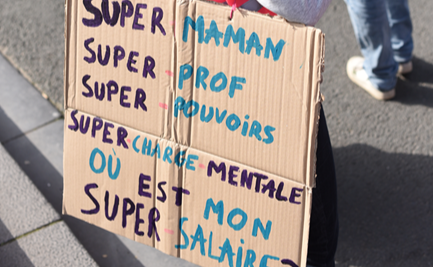 SUPER MAMAN
SUPER - PROF
SUPER - POUVOIRS
SUPER CHARGE - MENTALE
OÙ EST MON
SUPER - SALAIRE ?